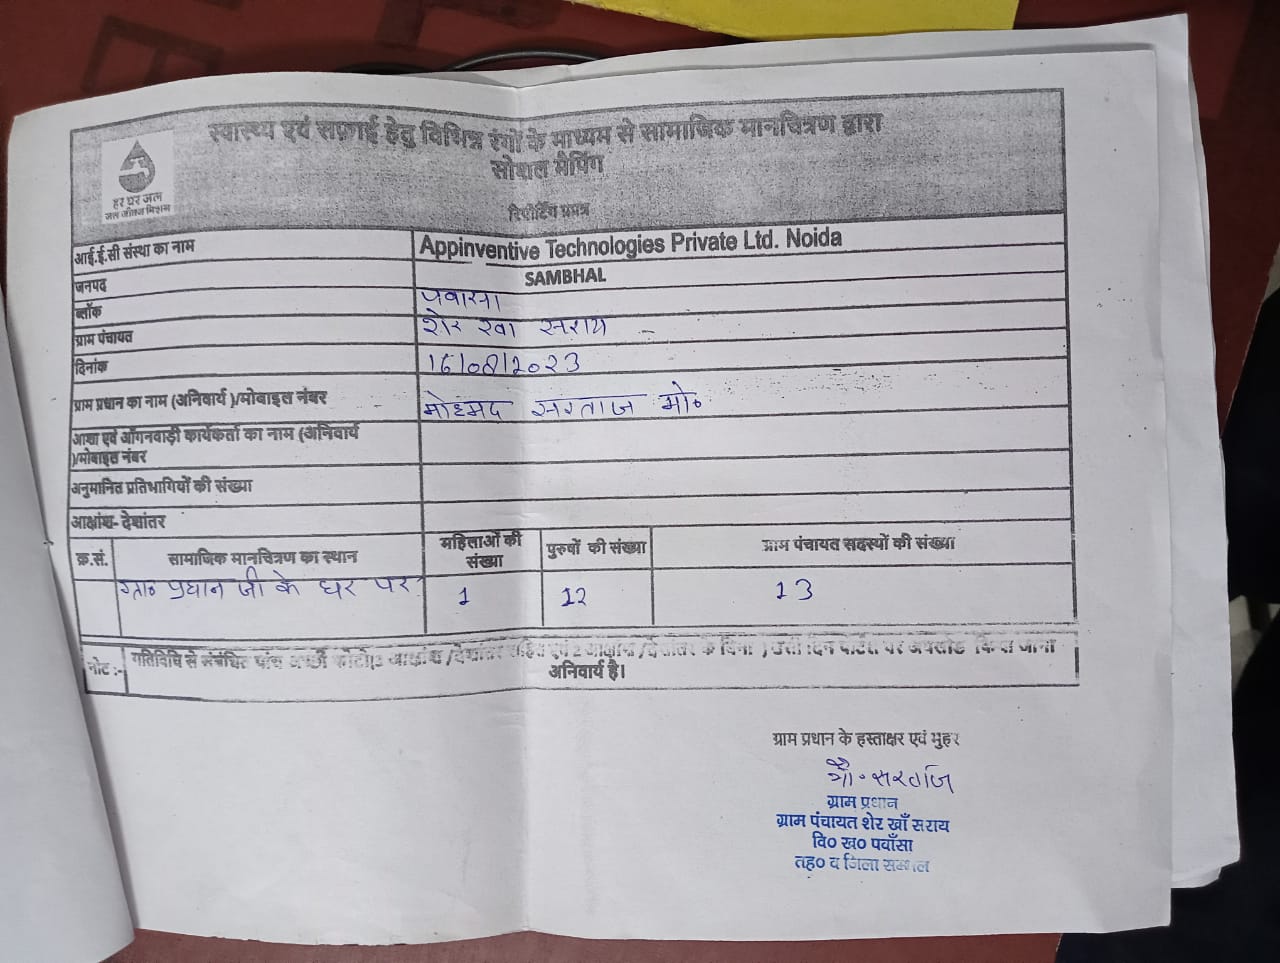 स्वास्थ्य एवं सफ़ाई हेतु विभिन्न रंगों के माध्यम से सामाजिक मानचित्रण द्वारा
सोशल मैपिंग
हर घर जल
जल जीवन मिशन
रिपोर्टिंग प्रपत्र
आई.ई.सी संस्था का नाम Appinventive Technologies Private Ltd. Noida
जनपद SAMBHAL
ब्लॉक पवासा
ग्राम पंचायत शेर खा सराय
दिनांक 16/08/2023
ग्राम प्रधान का नाम (अनिवार्य )/मोबाइल नंबर मोहमद सरताज मो०
आशा एवं आँगनवाड़ी कार्यकर्ता का नाम (अनिवार्य
)/मोबाइल नंबर
अनुमानित प्रतिभागियों की संख्या
आक्षांश- देशांतर
क्र.सं. सामाजिक मानचित्रण का स्थान महिलाओं की संख्या पुरुषों की संख्या ग्राम पंचायत सदस्यों की संख्या
ग्रा० प्रधान जी के घर पर 1 12 13
नोट :- गतिविधि से संबंधित पांच अच्छी फोटो(3 आक्षांश /देशांतर सहित एवं 2 आक्षांश /देशांतर के बिना ) उसी दिन पोर्टल पर अपलोड किया जाना
अनिवार्य है।
ग्राम प्रधान के हस्ताक्षर एवं मुहर
मौ० सरताज
ग्राम प्रधान
ग्राम पंचायत शेर खाँ सराय
वि० ख० पवाँसा
तह० व जिला सम्भल